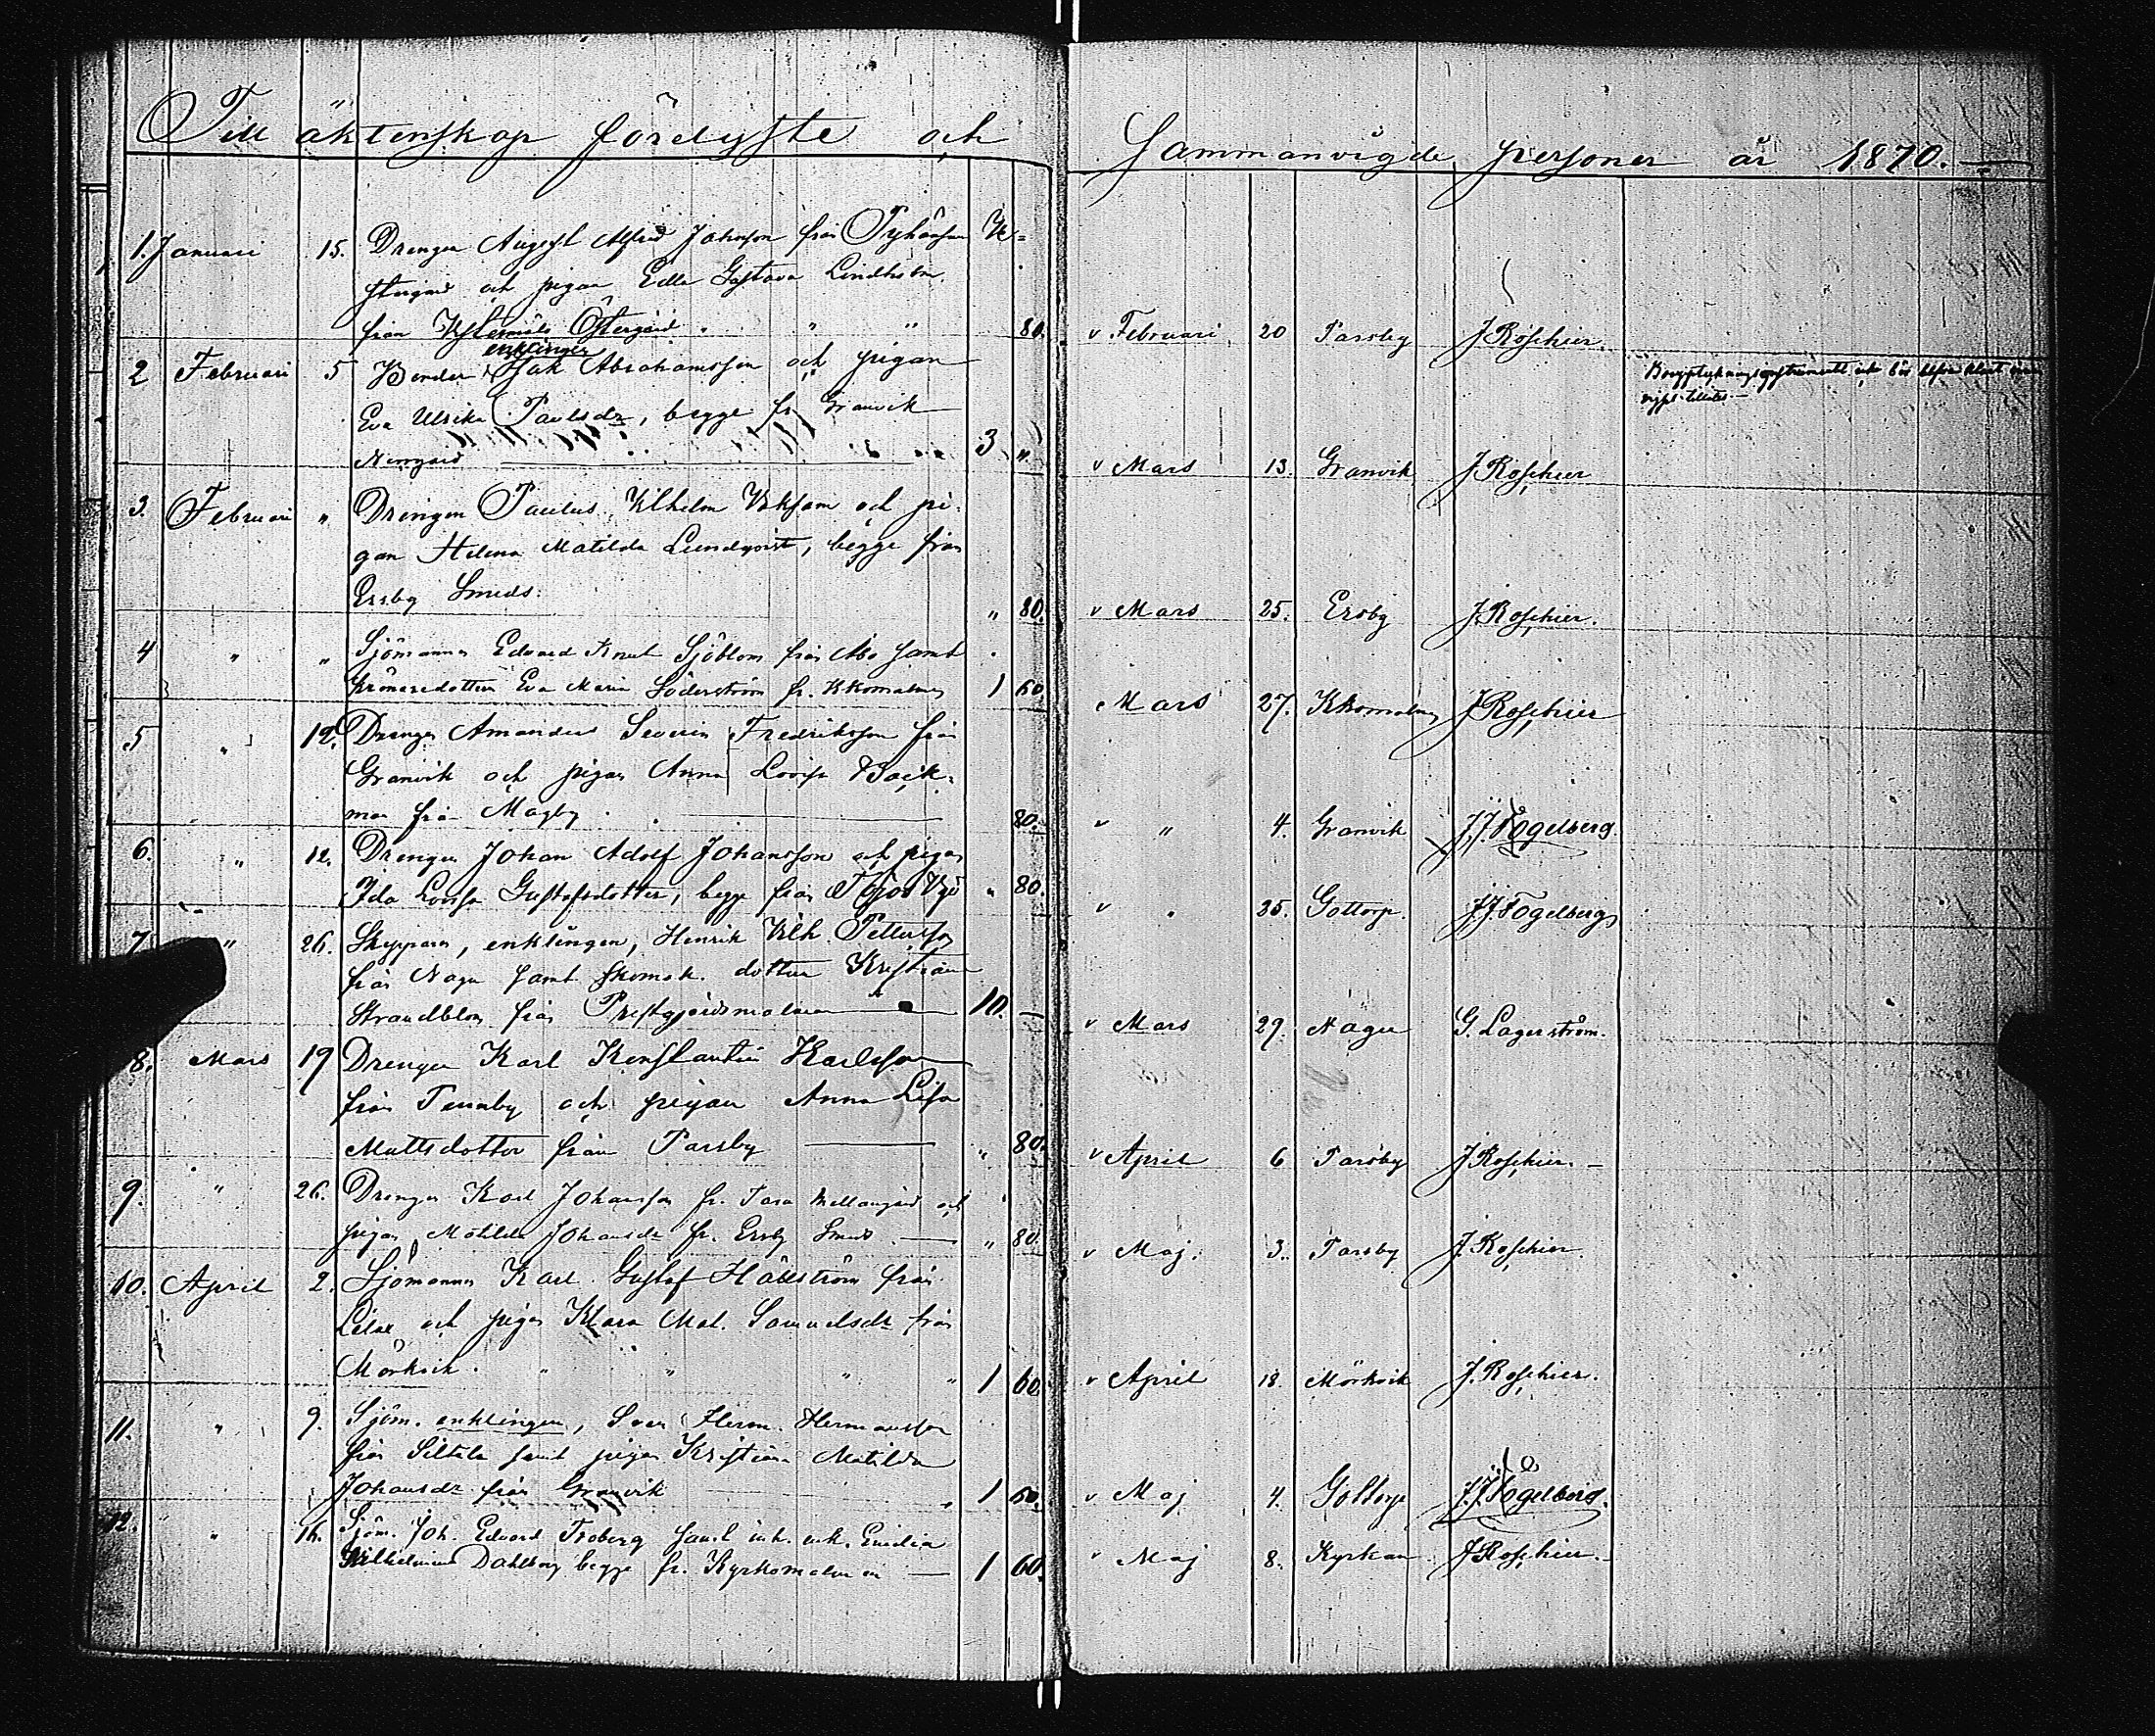 Till äktenskap förelyste och
1. Januari 15. Drengen August Alfred Johnson från Pyhänsu
stugård och pigan Edla Gustava Lindholm
från Östergård 80.
enklingen
2 Februari 5 Bonden Isak Abrahamsson och pigan
Eva Ulrika Paulsdr, begge fr. Granvik
Norrgård 3 "
3. Februari " Drengen Paulus Vilhelm och pi-
gan Helena Matilda Lundqvist, begge från
Ersby Smeds. " 80.
4 " " Sjömannen Edvard Knut Sjöblom från Åbo samt
Eva Maria Söderström fr. Kkomalmen 1 60
5 " 12. Drengen Amandus Severin Fredriksson från
Granvik och pigan Anna Lovisa Back-
man från Magby 80.
6. " 12. Drengen Johan Adolf Johansson och pigan
Ida Lovisa Gustafsdotter, begge från " 80.
7 " 26. Skepparen, enklingen, Henrik Vilh. Pettersson
från Nagu samt skomak. dottren Kristina
Strandblom från Prestgårdsmalmen 10. —
8. Mars 19 Drengen Karl Konstantin Karlsson
från Tennby och pigan Anna Lisa
Mattsdotter från Parsby " 80.
9. " 26. Drengen Karl Johansson fr. Mellangård och
pigan Matilda Johansdr fr. Ersby Smeds " 80.
10. April 2. Sjömannen Karl Gustaf Hällström från
och pigan Klara Mat. Samuelsdr från
Mörkvik " " " " 1 60.
11. " 9. Sjöm. enklingen, Sven Herm. Hermansson
från Siltala samt pigan Kristina Matilda
Johansdr från Granvik 1 60.
12. " 16. Sjöm. Joh. Edvard Froberg samt Emilia
Vilhelmina Dahlberg begge fr. Kyrkomalmen 1 60.
Sammanvigde personer år 1870.
v Februari 20 Parsby J. Roschier.
v Mars 13. Granvik J. Roschier
v Mars 25. Ersby J. Roschier.
Mars 27. Kkomalmen J. Roschier
v " 4. Granvik J. J. Fogelberg.
v " 25. Gottorp. J. J. Fogelberg
v Mars 29. Nagu G. Lagerström.
v April 6 Parsby J. Roschier.
v Maj. 3. Parsby J. Roschier.
v April 18. Mörkvik J. Roschier.
v Maj 4. Gottorp J. J. Fogelberg.
v Maj 8. Kyrkan J. Roschier.